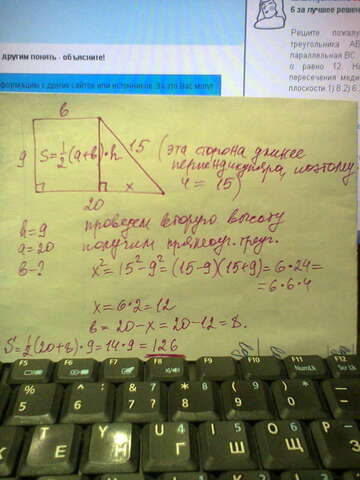 6 за лучшее решен
Решите пожалу
треугольника АВ
параллельная ВС
о равно 12. На
пересечения мед
плоскости 1) В.2) б.
другим понять - объясните!
формацию с других сайтов или источников. За это Вас могут
в
9 S=½(a+в)·h 15 (эта сторона длиннее
перпендикуляра, поэтому
Ч = 15)
x
20
h=9 проведем вторую высоту
a=20 получим прямоуг. треуг.
в-? x²=15²-9²=(15-9)(15+9)=6·24=
=6·6·4
x=6·2=12
в=20-x=20-12=8.
S=½(20+8)·9=14·9=126
F5 F6 F7 F8 F9 F10 F11 F12
NumLk ScrLk
% 5 ^ 6 & 7 * 8 ( 9 ) 0
T Е Y Н U Г I Ш O Щ P З